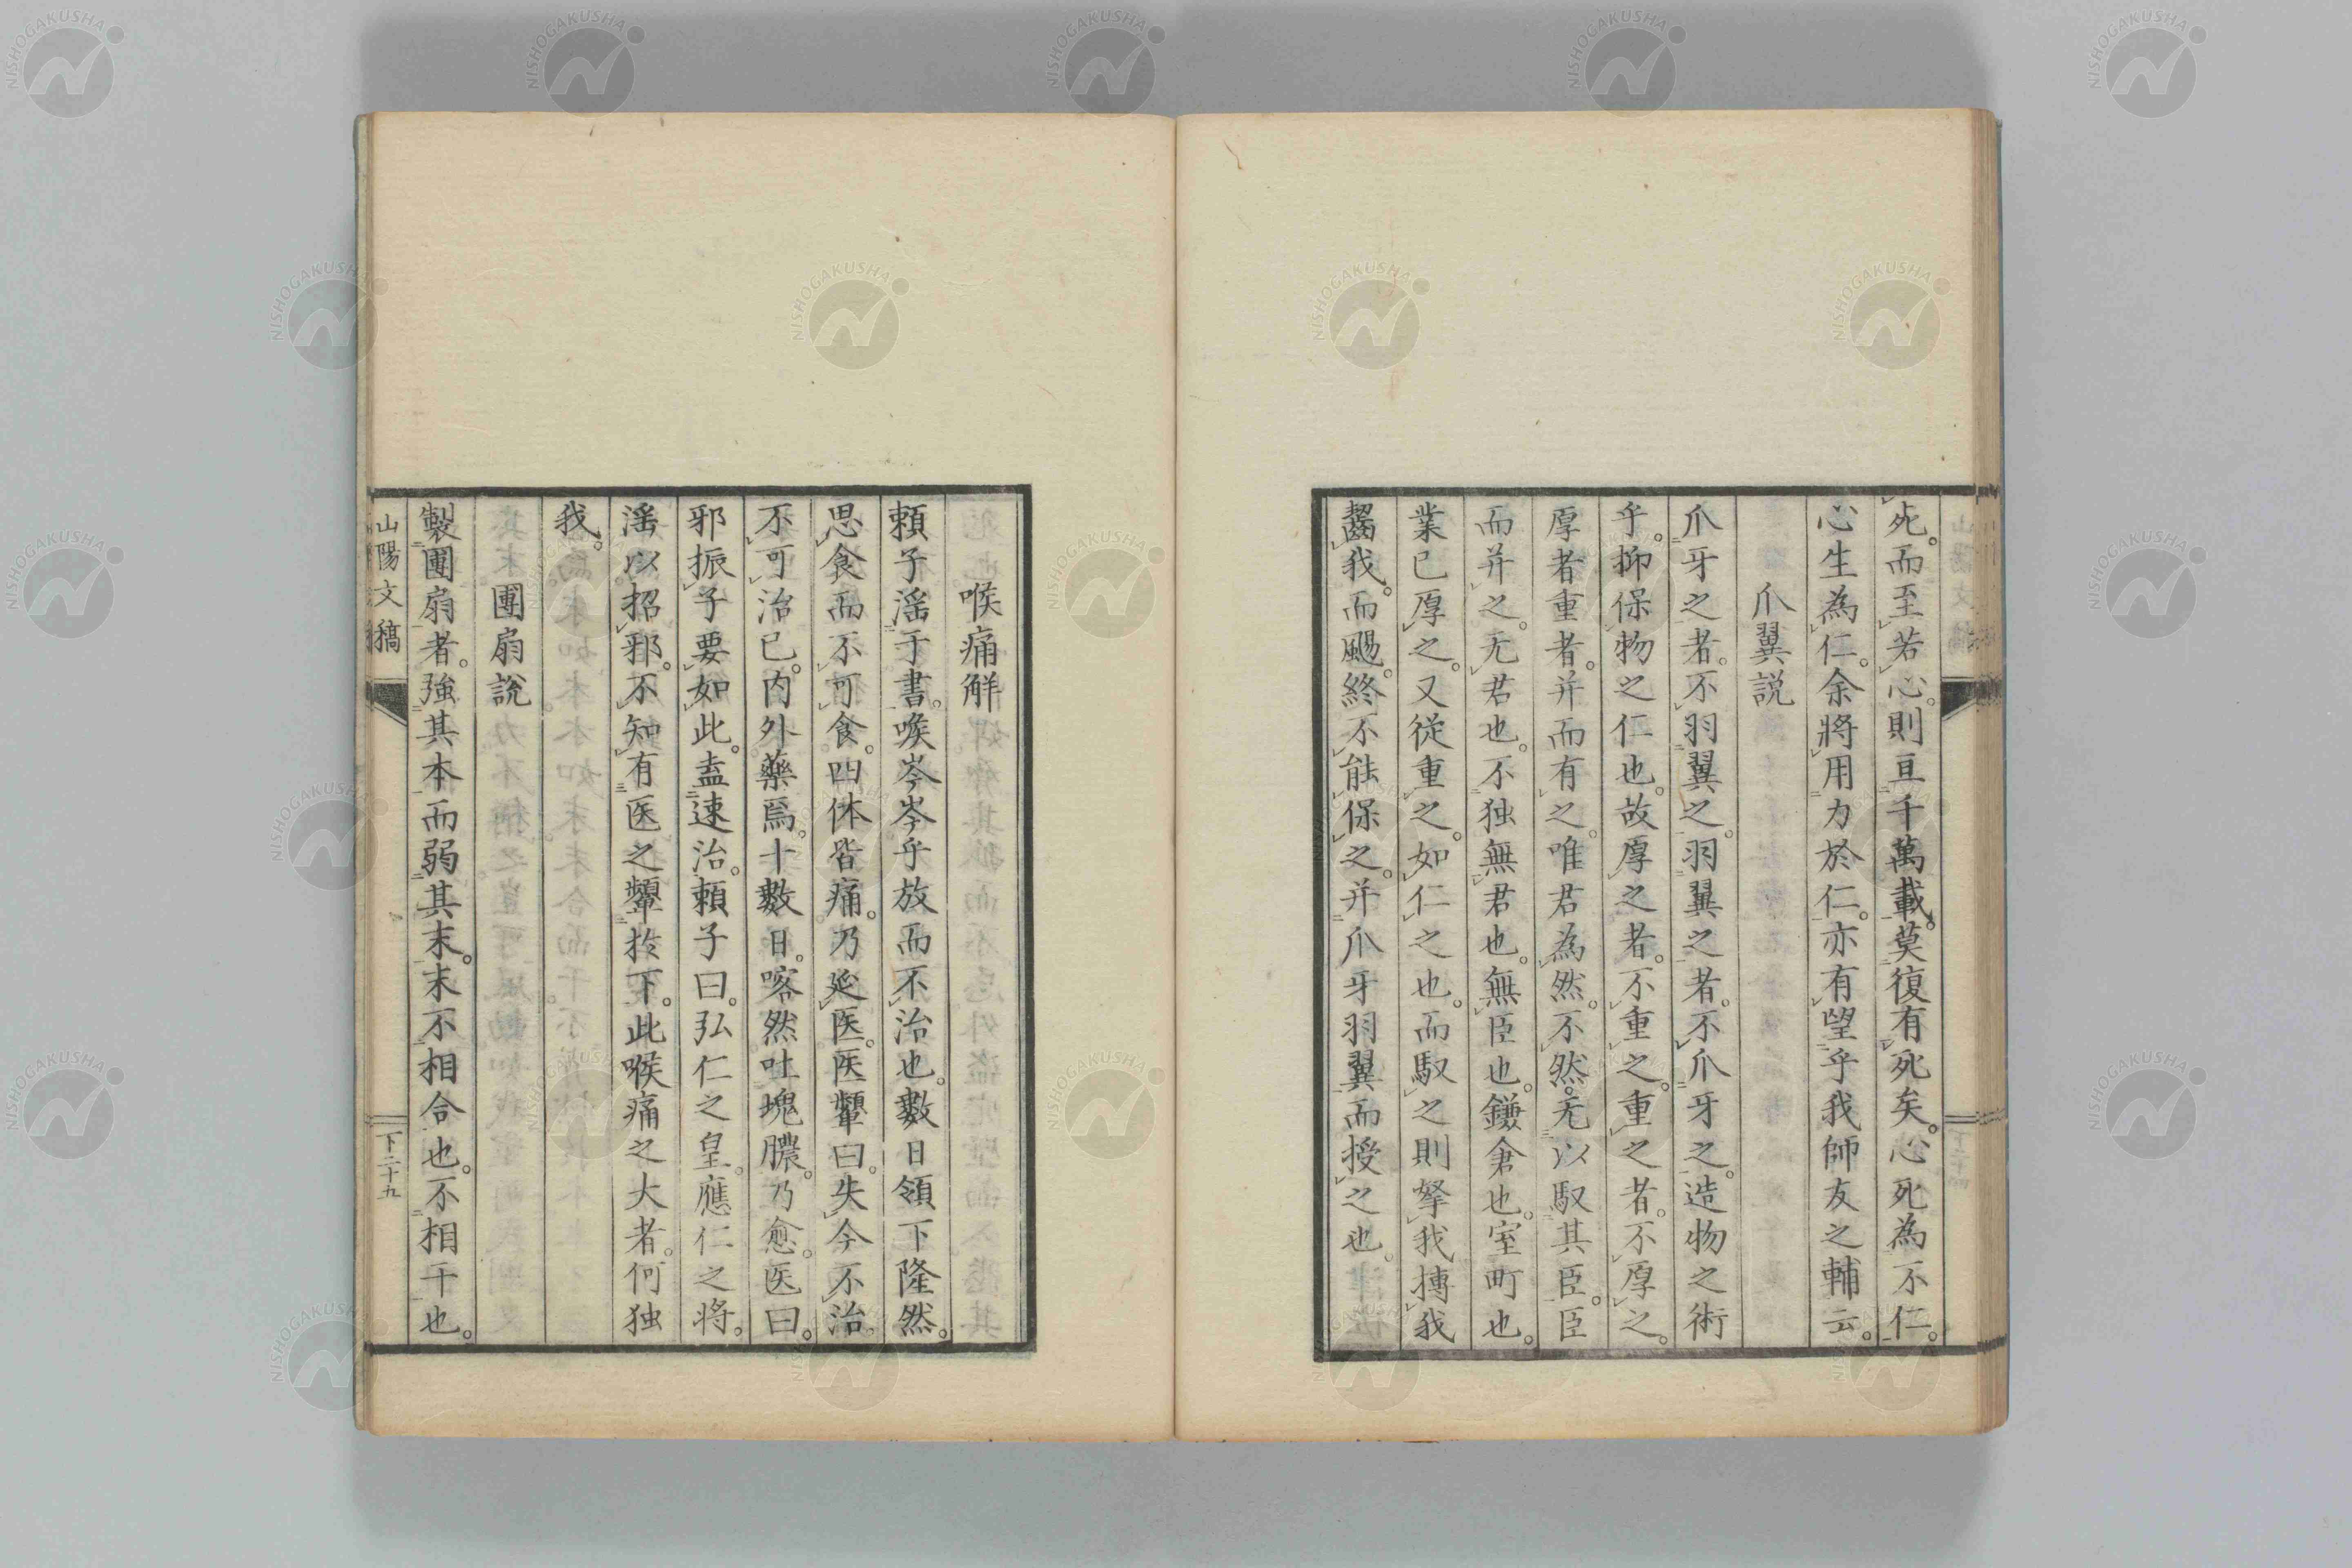 死。而至若心。則亘千萬載。莫復有死矣。心死為不仁。
心生為仁。余將用力於仁。亦有望乎我師友之輔云。
爪翼説
爪牙之者。不羽翼之。羽翼之者。不爪牙之。造物之術
乎。抑保物之仁也。故厚之者。不重之。重之者。不厚之。
厚者重者。并而有之。唯君為然。不然。无以馭其臣。臣
而并之。无君也。不独無君也。無臣也。鎌倉也。室町也。
業已厚之。又従重之。如仁之也。而馭之則拏我摶我
齧我。而颺。終不能保之。并爪牙羽翼而授之也。
喉痛解
頼子滛于書。喉岑岑乎放而不治也。數日領下隆然。
思食而不可食。四体皆痛。乃延医。医顰曰。失今不治
不可治已。内外藥焉。十數日。喀然吐塊膿。乃愈。医曰。
邪振子要如此。盍速治。頼子曰。弘仁之皇。應仁之将。
滛以招邪。不知有医之顰於下。此喉痛之大者。何独
我。
團扇說
製團扇者。強其本而弱其末。末不相合也。不相干也。
山陽文稿
下二十九
NISHOGAKUSHA